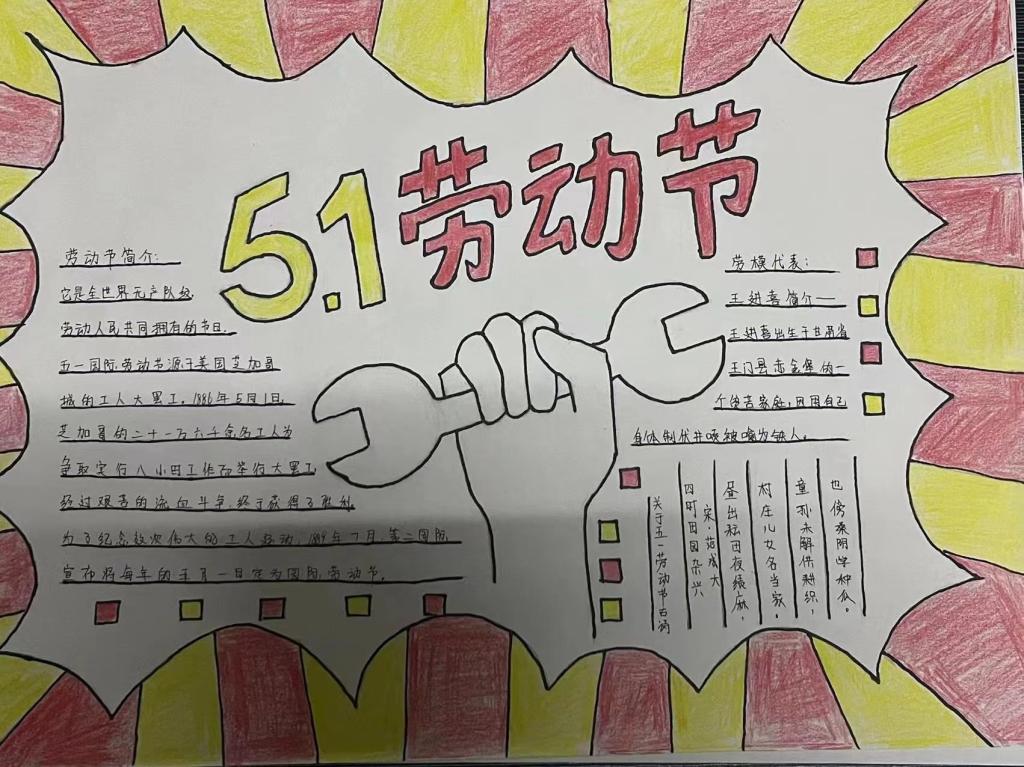 5.1劳动节
劳动节简介:
它是全世界无产阶级,
劳动人民共同拥有的节日.
五一国际劳动节源于美国芝加哥
城的工人大罢工. 1886年5月1日,
芝加哥的二十一万六千余名工人为
争取实行八小时工作而举行大罢工
经过艰苦的流血斗争,终于获得了胜利.
为了纪念这次伟大的工人运动, 1889年7月,第二国际
宣布将每年的五月一日定为国际劳动节。
劳模代表:
王进喜简介——
王进喜出生于甘肃省
玉门县赤金堡的一
个贫苦家庭,因用自己
身体制伏井喷被喻为铁人。
关于五一劳动节古诗
四时田园杂兴
宋.范成大
昼出耘田夜绩麻,
村庄儿女各当家。
童孙未解供耕织,
也傍桑阴学种瓜。